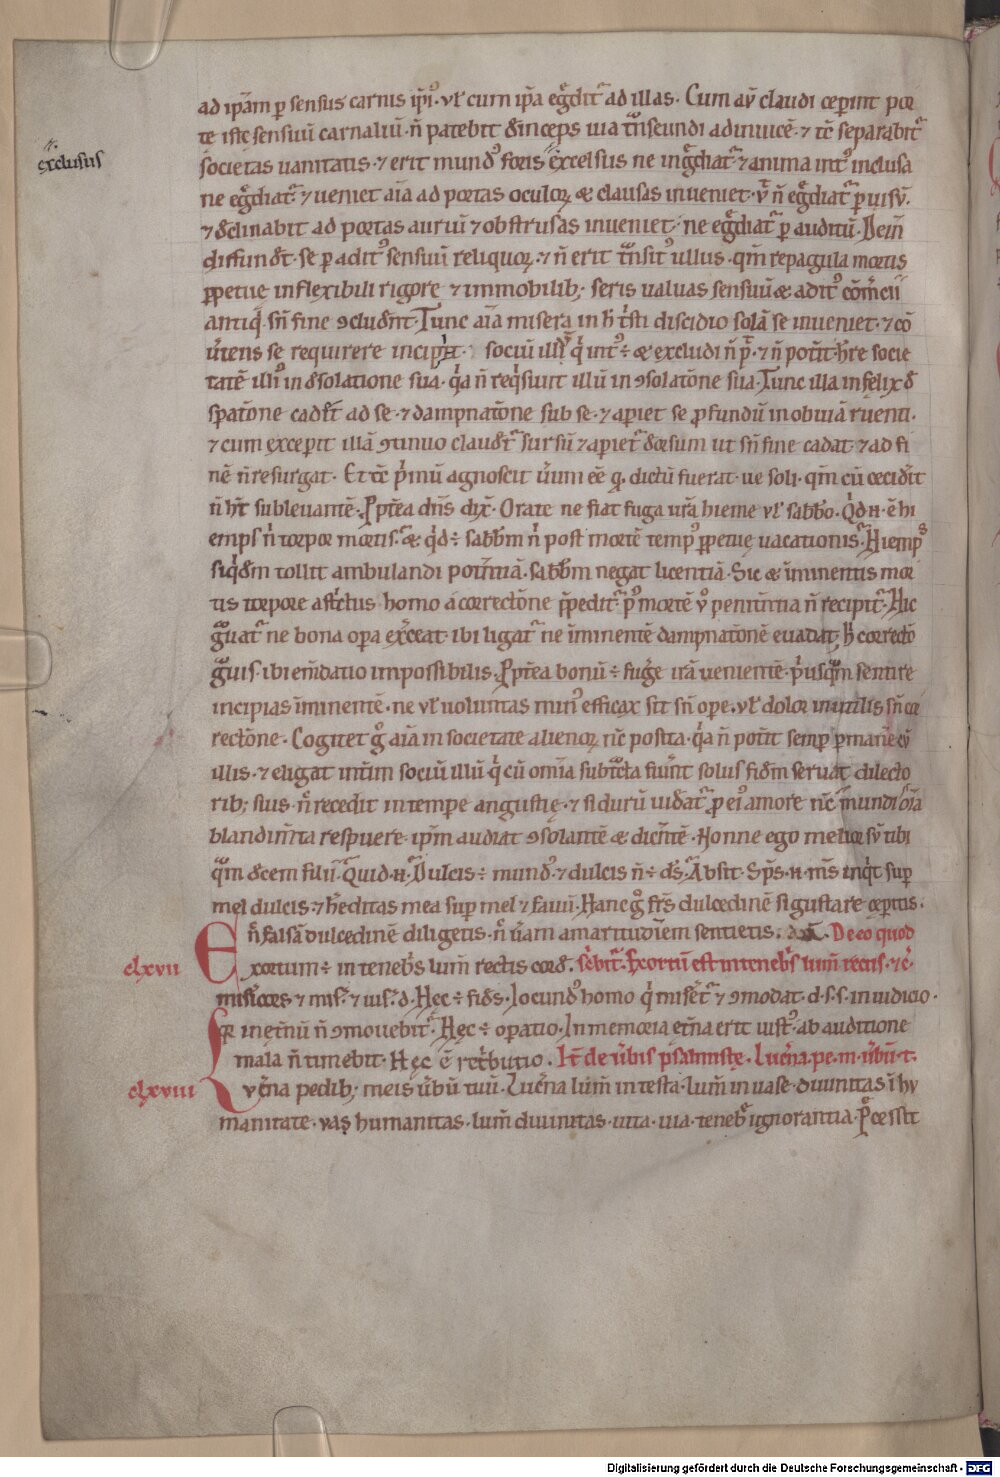 ad ip̄am ꝑ sensus carnis ip̄i᷒. vł cum ip̄a eg̊dit᷑ ad illas. Cum aūt claudi ceperint por
te iste sensuū carnaliū. ñ patebit deinceps uia tn̄seundi adinuicē. ⁊ tc̄ separabit᷑
exclusus
societas uanitatis. ⁊ erit mund᷒ foris excelsus ne ing̊diat᷑ ⁊ anima int᷒ inclusa
ne eg̊diat᷑. ⁊ ueniet aīa ad portas oculoꝝ. & clausas inueniet. ñ eg̊diat᷑ ꝑ uisū.
⁊ declinabit ad portas auriū ⁊ obstrusas inueniet. ne eg̊diat᷑ ꝑ auditū. Dein̄
diffundet se ꝑ adit᷒ sensuū reliquoꝝ. ⁊ ñ erit tn̄sit᷒ ullus. qm̄ repagula mortis
ꝑpetuę inflexibili rigore ⁊ immobilib; seris ualuas sensuū & adit᷒ com̄cii
antiq̇ sn̄ fine ꝯcludent. Tunc aīa misera in h̄ tristi discidio solā se inueniet. ⁊ cō
uertens se requirere incipiet. sociū illū q̇ int᷒ ÷ & excludi ñ pt̄. ⁊ ñ poterit hr̄e socie
tatē illi᷒ in desolatione sua. q̇a ñ req̇siuit illū in ꝯsolatōne sua. Tunc illa infelix de
speratōne cadet ad se. ⁊ dampnatōne sub se. ⁊ apiet se ꝓfundū in obuiā ruenti.
⁊ cum excepit illā ꝯtinuo claudet᷑ sursū ⁊ apiet᷑ deorsum ut sn̄ fine cadat ⁊ ad fi
nē ñ resurgat. Et tc̄ ṗmū agnoscit uerum eē q̱ dictū fuerat. ue soli. qm̄ cū ceciderit
ñ ht̄ subleuantē. Ꝓpt̄ea dn̄s dix̄. Orate ne fiat fuga ur̄a hieme vł sabb̄o. Q̇d .N. ē hi
emps n̄ torpor mortis. & q̇d ÷ sabb̄m n̄ post mortē temp᷒ ꝑpetuę uacationis. Hiemps
siq̇dm̄ tollit ambulandi potn̄tiā. sabb̄m negat licentiā. Sic & iminentis mor
tis torpore astrictus homo a correctōne p̄pedit᷑. p᷒ mortē ů penitn̄tia ñ recipit᷑. Hic
g̊uat᷑ ne bona opera exerceat. ibi ligat᷑ ne iminentē dampnatōnē euadat. h̄ correctio
g̊uis. ibi em̄datio impossibilis. Ꝓpt̄ea bonū ÷ fugere irā uenientē. ṗusquam sentire
incipias iminentē. ne vł uoluntas min᷒ efficax sit sn̄ ope. vł dolor inutilis sn̄ cor
rectōne. Cogitet g̊ aīam societate alienoꝝ nc̄ posita. q̇a ñ poterit semꝑ ꝑmanere cū
illis. ⁊ eligat interim sociū illū q̇ cū omīa subtracta fuerint solus fidem seruat dilecto
rib; suis. ñ recedit in tempe angustię. ⁊ si durū uideat᷑ ꝓ ei᷒ amore nc̄ mundi oīa
blandim̄ta respuere. ip̄m audiat ꝯsolantē & dicentē. Nonne ego melior sū tibi
quam decem filii. Quid .N. Dulcis ÷ mund᷒. ⁊ dulcis ñ ÷ ds̄. Absit. Sp̄s .N. ms̄ inq̇t suꝑ
mel dulcis. ⁊ hereditas mea suꝑ mel ⁊ fauū. Hanc g̊ fr̄s dulcedinē si gustare ceperitis.
ñ falsā dulcedinē diligetis. ñ ueram amaritudinem sentietis. De eo quod
clxvii Exortum ÷ in tenebris lum̄ rectis corde. scribit᷑. Exortū est in tenebris lum̄ rectis. ⁊ c̄.
misericors ⁊ mis᷑. ⁊ iust᷒ d. Hęc ÷ fides. Iocund᷒ homo q̇ miseret᷑ ⁊ ꝯmodat. d. s. s. in iudicio.
qr in eternū ñ ꝯmouebit᷑. Hęc ÷ operatio. In memoria eterna erit iust᷒. ab auditione
mala ñ timebit. Hęc ē retributio. It̄ de uerbis psalmistę. Lucerna. pe. m. uerbū. t.
clxviii Lucerna pedib; meis uerbū tuū. Lucerna lum̄ in testa. lum̄ in uase. diuinitas in hu
manitate. vas humanitas. lum̄ diuinitas. uita. uia. tenebre ignorantia. Processit
Digitalisierung gefördert durch die Deutsche Forschungsgemeinschaft - DFG